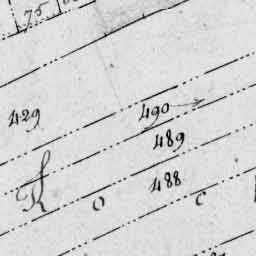 75
429
490
489
488
K o c